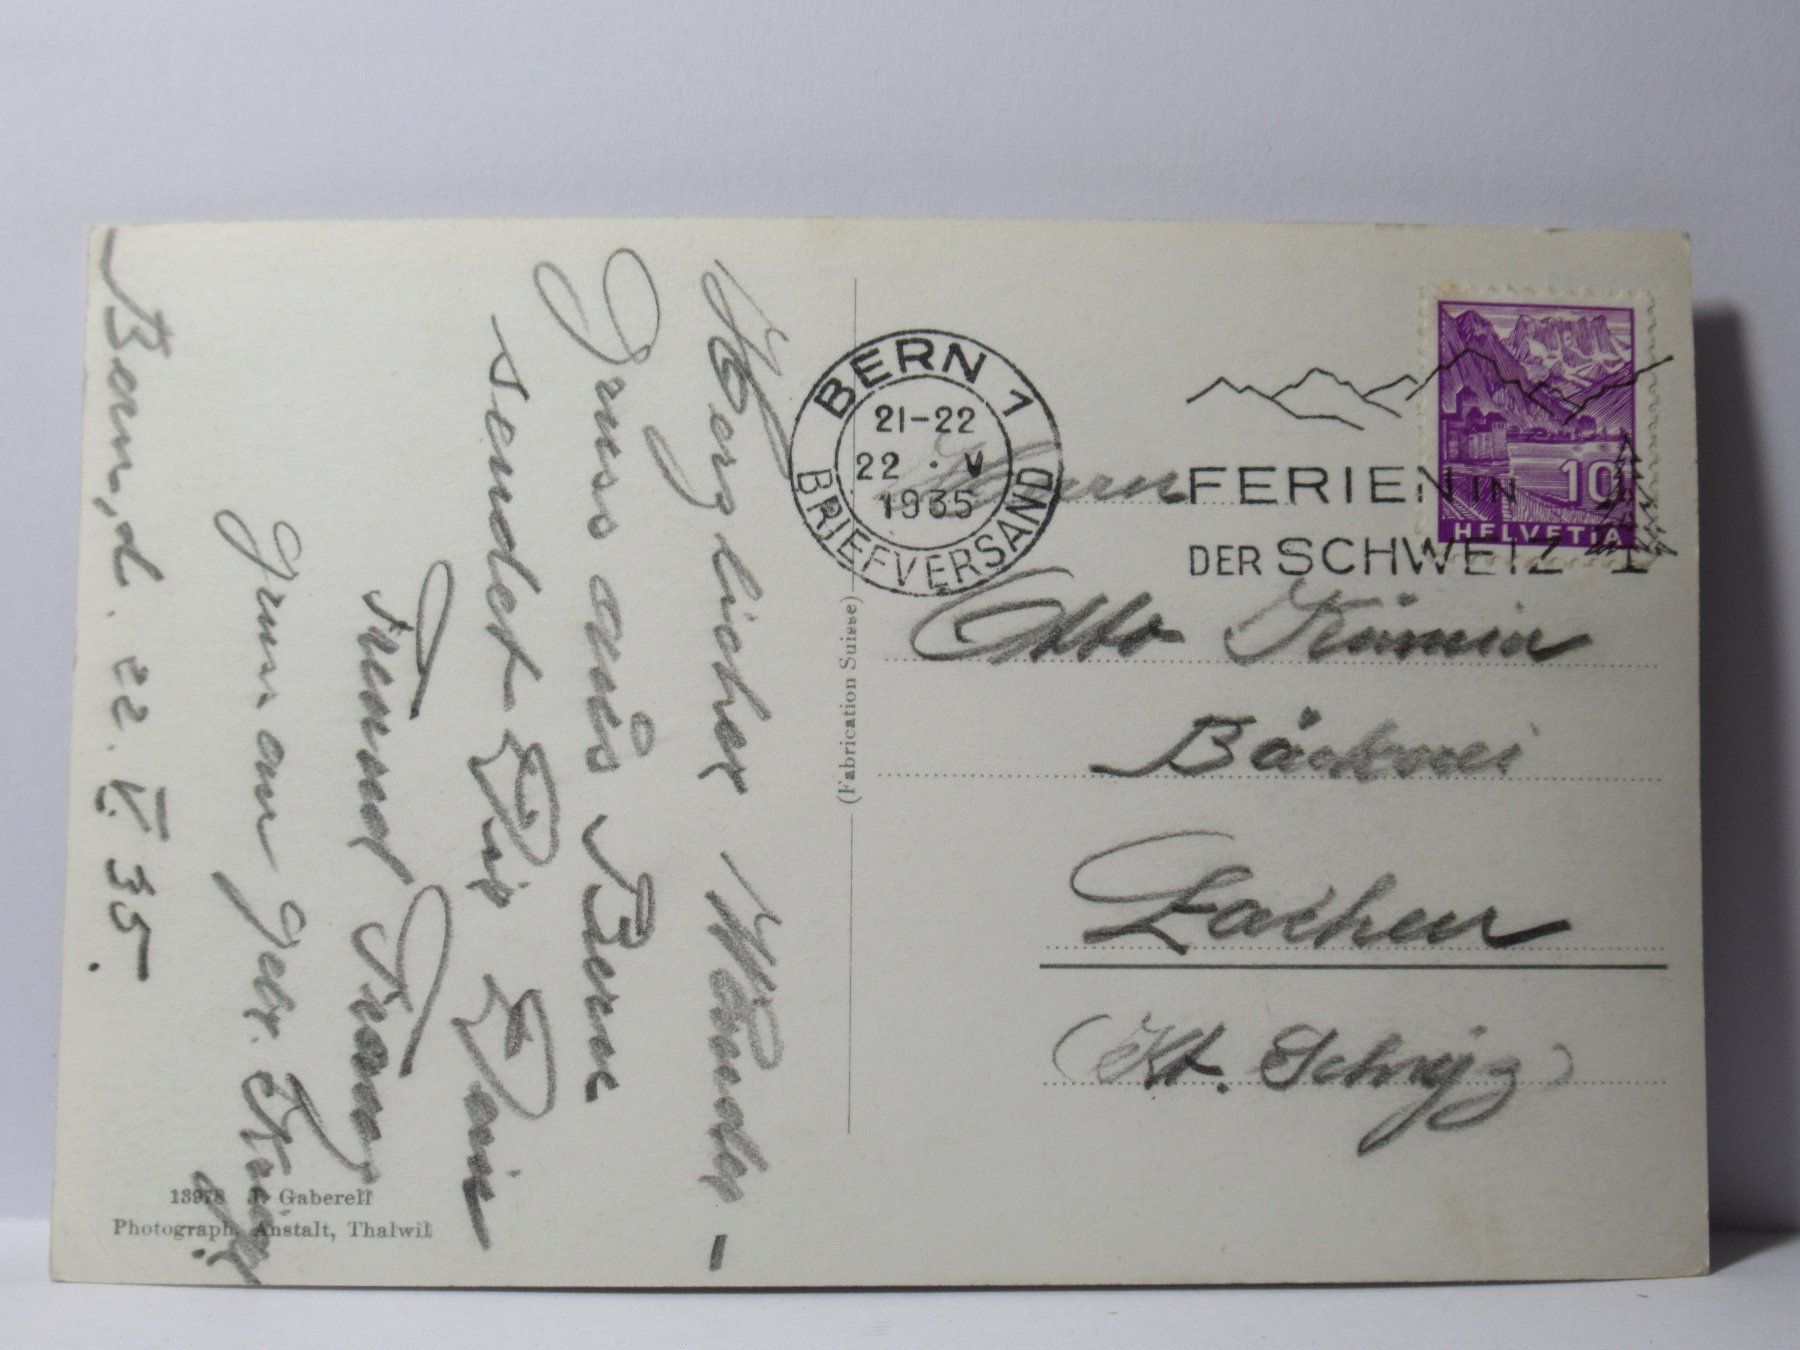 Bern, d. 22. V. 35.
Herzlicher Wander-
gruss aus Bern
sendet Dir Dein
Freund Franz
Gruss an Gebr.
BERN 1
21-22
22 · V
1935
BRIEFVERSAND
FERIEN IN
DER SCHWEIZ
10
HELVETIA
Herrn
Otto
Bäckerei
Lachen
(Kt. Schwyz)
(Fabrication Suisse)
13978 J. Gaberell
Photograph. Anstalt, Thalwil